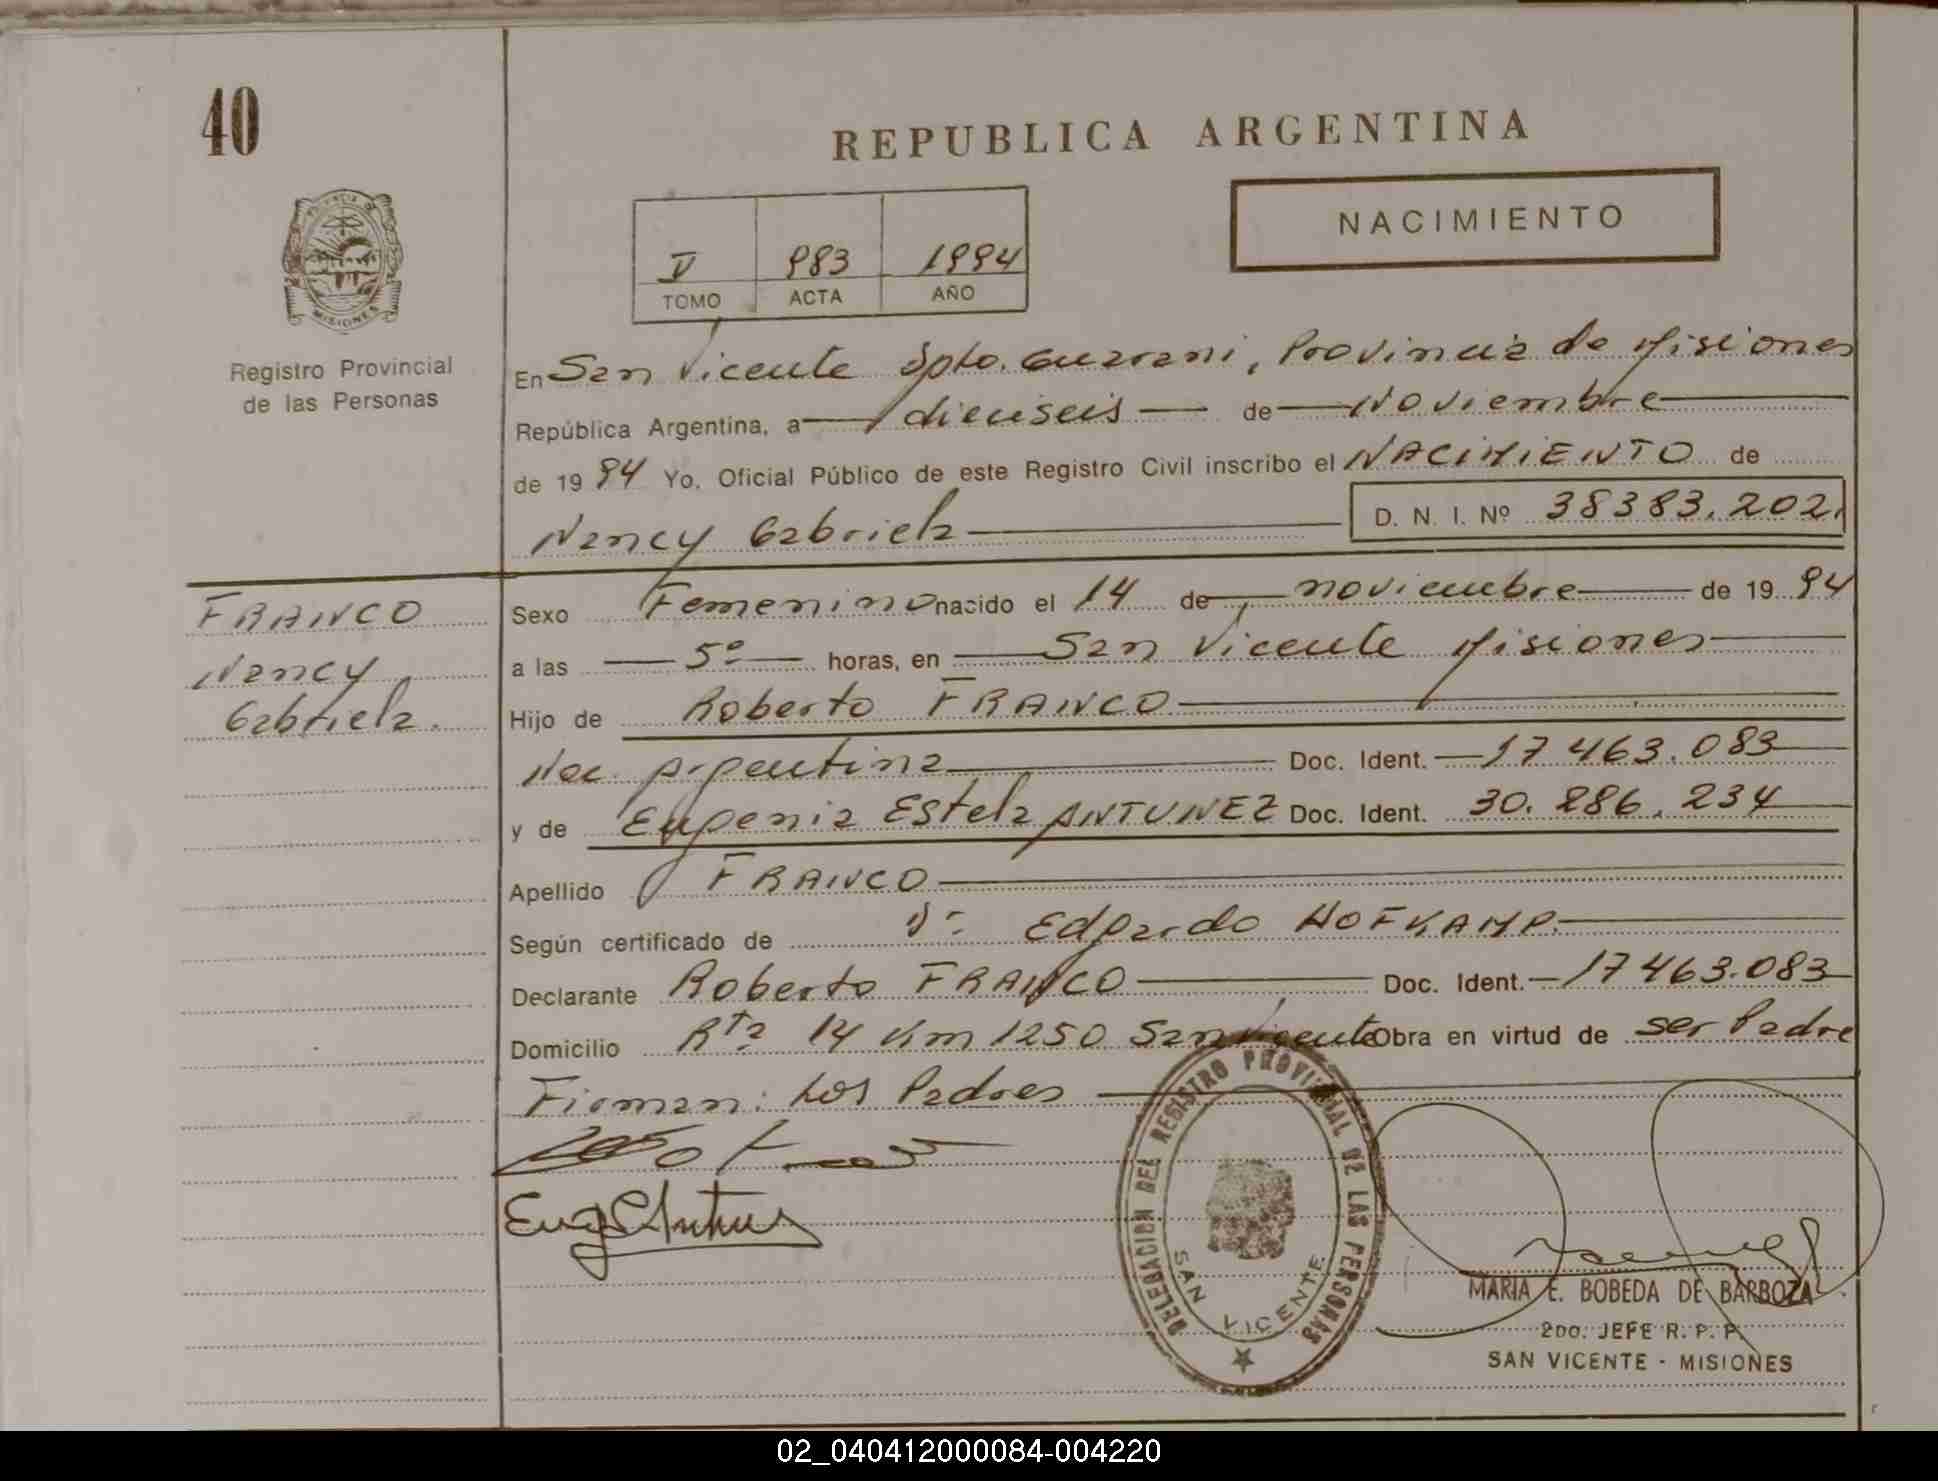 40
REPUBLICA ARGENTINA
NACIMIENTO
V 983 1994
TOMO ACTA AÑO
PROVINCIA DE
MISIONES
Registro Provincial
de las Personas
En San Vicente Dpto. Guarani, Provincia de Misiones
República Argentina, a dieciseis de Noviembre
de 1994 Yo, Oficial Público de este Registro Civil inscribo el NACIMIENTO de
Nancy Gabriela D. N. I. Nº 38383.202.
FRANCO
Nancy
Gabriela.
Sexo Femenino nacido el 14 de noviembre de 1994
a las 5º horas, en San Vicente Misiones
Hijo de Roberto FRANCO
Nac. Argentina Doc. Ident. 17463.083
y de Eugenia Estela ANTUNEZ Doc. Ident. 30.286.234
Apellido FRANCO
Según certificado de Dr. Edgardo HOFKAMP.
Declarante Roberto FRANCO Doc. Ident. 17463.083
Domicilio Rta 14 Km 1250 San Vicente Obra en virtud de ser Padre
Firman: Los Padres
DELEGACION DEL REGISTRO PROVINCIAL DE LAS PERSONAS
SAN VICENTE
MARIA E. BOBEDA DE BARBOZA
2DO. JEFE R. P. P.
SAN VICENTE - MISIONES
02_040412000084-004220